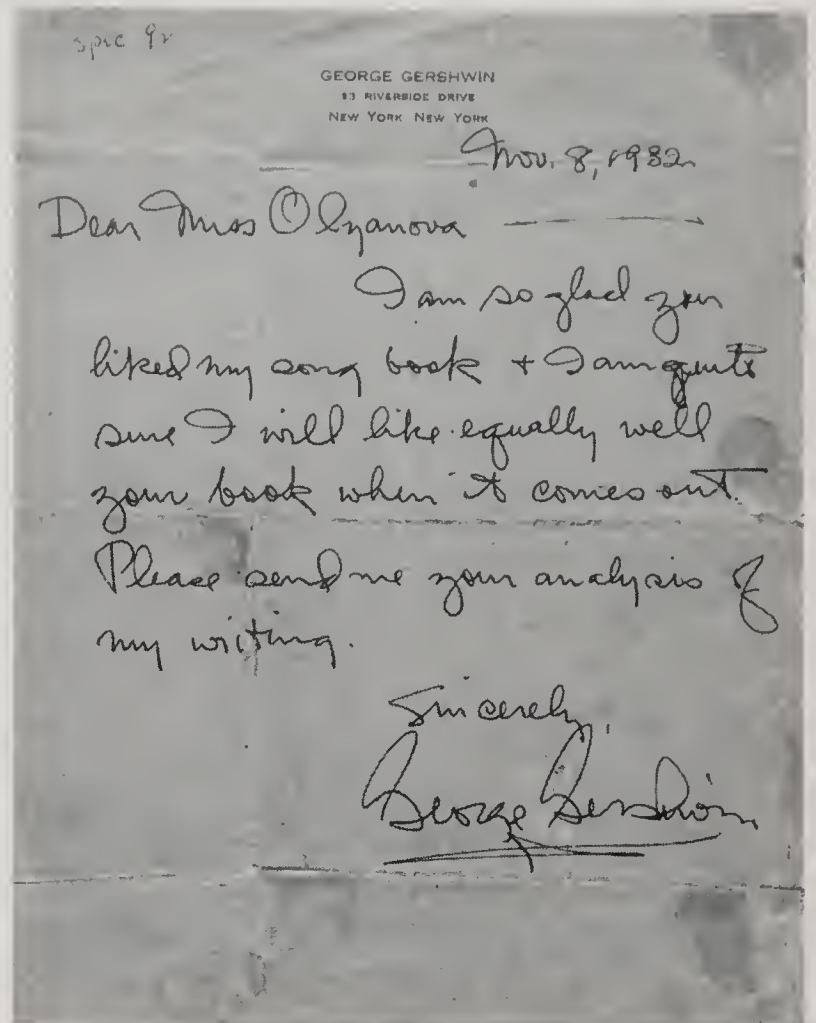 spec 92
GEORGE GERSHWIN
33 RIVERSIDE DRIVE
NEW YORK NEW YORK
Nov. 8, 1932
Dear Miss Olyanova
I am so glad you
liked my song book + I am quite
sure I will like equally well
your book when it comes out.
Please send me your analysis of
my writing.
Sincerely,
George Gershwin